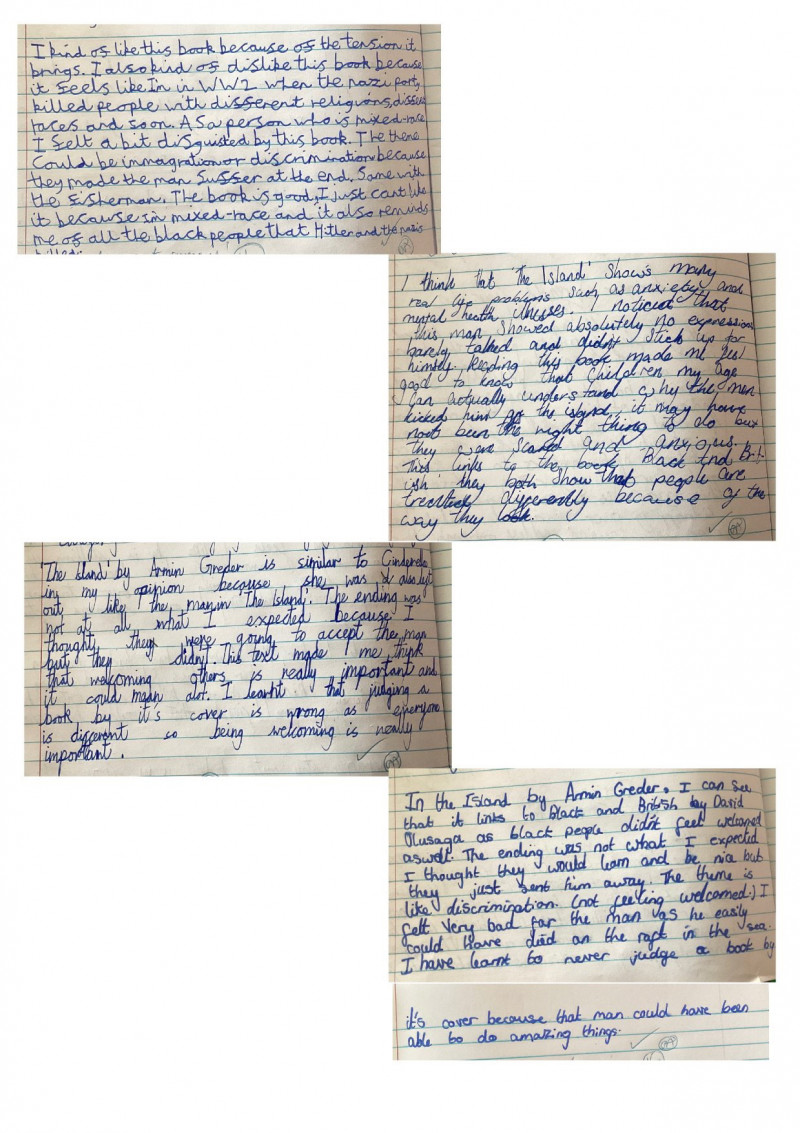 I kind of like this book because of the tension it
brings. I also kind of dislike this book because
it feels like Im in WW2 when the nazi party
killed people with different religions, different
races and so on. As a person who is mixed-race
I felt a bit disgusted by this book. The theme
Could be immagration or discrimination because
they made the man Suffer at the end. Same with
the fisherman. The book is good, I just cant like
it because im mixed-race and it also reminds
me of all the black people that Hitler and the nazis
killed
I think that 'The Island' Show's many
real life problems such as anxiety and
mental health illnesses. I noticed that
this man showed absolutely no expression
barely talked and didn't stick up for
himself. Reading this book made me feel
good to know that children my age
can actually understand why the men
kicked him off the island, it may have
not been the right thing to do but
they were scared and anxious.
This links to the book 'Black and Brit-
ish' they both show that people are
treated differently because of the
way they look.
'The Island' by Armin Greder is similar to Cinderela
in my opinion because she was also left
out like the man in 'The Island'. The ending was
not at all what I expected because I
thought they were going to accept the man
but they didn't. This text made me think
that welcoming others is really important and
it could mean alot. I learnt that judging a
book by it's cover is wrong as everyone
is different so being welcoming is really
important.
In the Island by Armin Greder. I can see
that it links to Black and British by David
Olusaga as black people didn't feel welcomed
aswell. The ending was not what I expected
I thought they would learn and be nice but
they just sent him away. The theme is
like discrimination. (not feeling welcomed.) I
felt very bad for the man as he easily
could have died on the raft in the sea.
I have learnt to never judge a book by
it's cover because that man could have been
able to do amazing things.